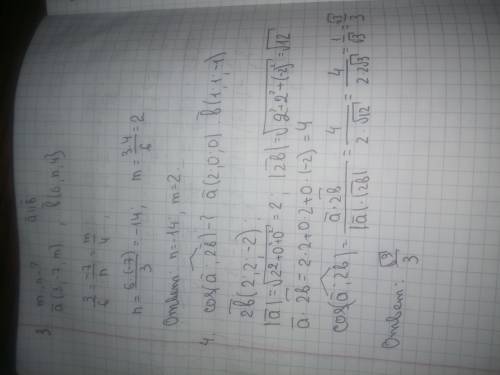 3. m, n - ? a̅ ∥ b̅
a̅ (3, -7, m) , b̅ (6, n, 4)
3/6 = -7/n = m/4 ,
n = 6·(-7)/3 = -14 ; m = 3·4/6 = 2
Ответ n = -14 ; m = 2
4. cos(a̅ ; 2b̅) - ? a̅ (2; 0; 0) b̅ (1; 1; -1)
2b̅ (2; 2; -2) ;
|a̅| = √(2² + 0² + 0²) = 2 ; |2b̅| = √(2² + 2² + (-2)²) = √12
a̅ · 2b̅ = 2·2 + 0·2 + 0·(-2) = 4
cos(a̅ ; 2b̅) = a̅·2b̅ / |a̅|·|2b̅| = 4 / 2·√12 = 4 / 2·2√3 = 1/√3 = √3/3
Ответ: √3/3